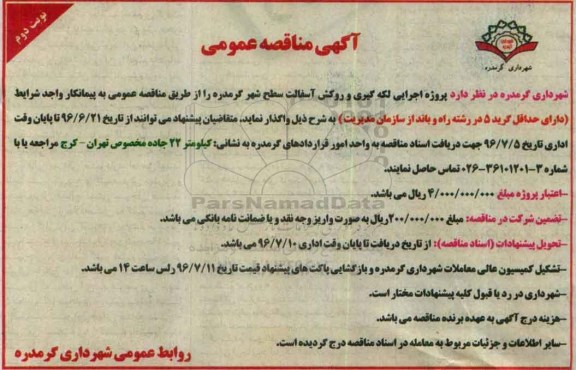 نوبت دوم
شهرداری گرمدره
آگهی مناقصه عمومی
شهرداری گرمدره در نظر دارد پروژه اجرایی لکه گیری و روکش آسفالت سطح شهر گرمدره را از طریق مناقصه عمومی به پیمانکار واجد شرایط
(دارای حداقل گرید ۵ در رشته راه و باند از سازمان مدیریت) به شرح ذیل واگذار نماید، متقاضیان پیشنهاد می توانند از تاریخ ۹۶/۶/۲۱ تا پایان وقت
اداری تاریخ ۹۶/۷/۵ جهت دریافت اسناد مناقصه به واحد امور قراردادهای گرمدره به نشانی: کیلومتر ۲۲ جاده مخصوص تهران - کرج مراجعه یا با
شماره ۳-۳۶۱۰۱۲۰۱-۰۲۶ تماس حاصل نمایند.
-اعتبار پروژه مبلغ ۴/۰۰۰/۰۰۰/۰۰۰ ریال می باشد.
-تضمین شرکت در مناقصه: مبلغ ۲۰۰/۰۰۰/۰۰۰ ریال به صورت واریز وجه نقد و یا ضمانت نامه بانکی می باشد.
-تحویل پیشنهادات (اسناد مناقصه): از تاریخ دریافت تا پایان وقت اداری ۹۶/۷/۱۰ می باشد.
-تشکیل کمیسیون عالی معاملات شهرداری گرمدره و بازگشایی پاکت های پیشنهاد قیمت تاریخ ۹۶/۷/۱۱ راس ساعت ۱۴ می باشد.
-شهرداری در رد یا قبول کلیه پیشنهادات مختار است.
-هزینه درج آگهی به عهده برنده مناقصه می باشد.
-سایر اطلاعات و جزئیات مربوط به معامله در اسناد مناقصه درج گردیده است.
روابط عمومی شهرداری گرمدره
ParsNamadData